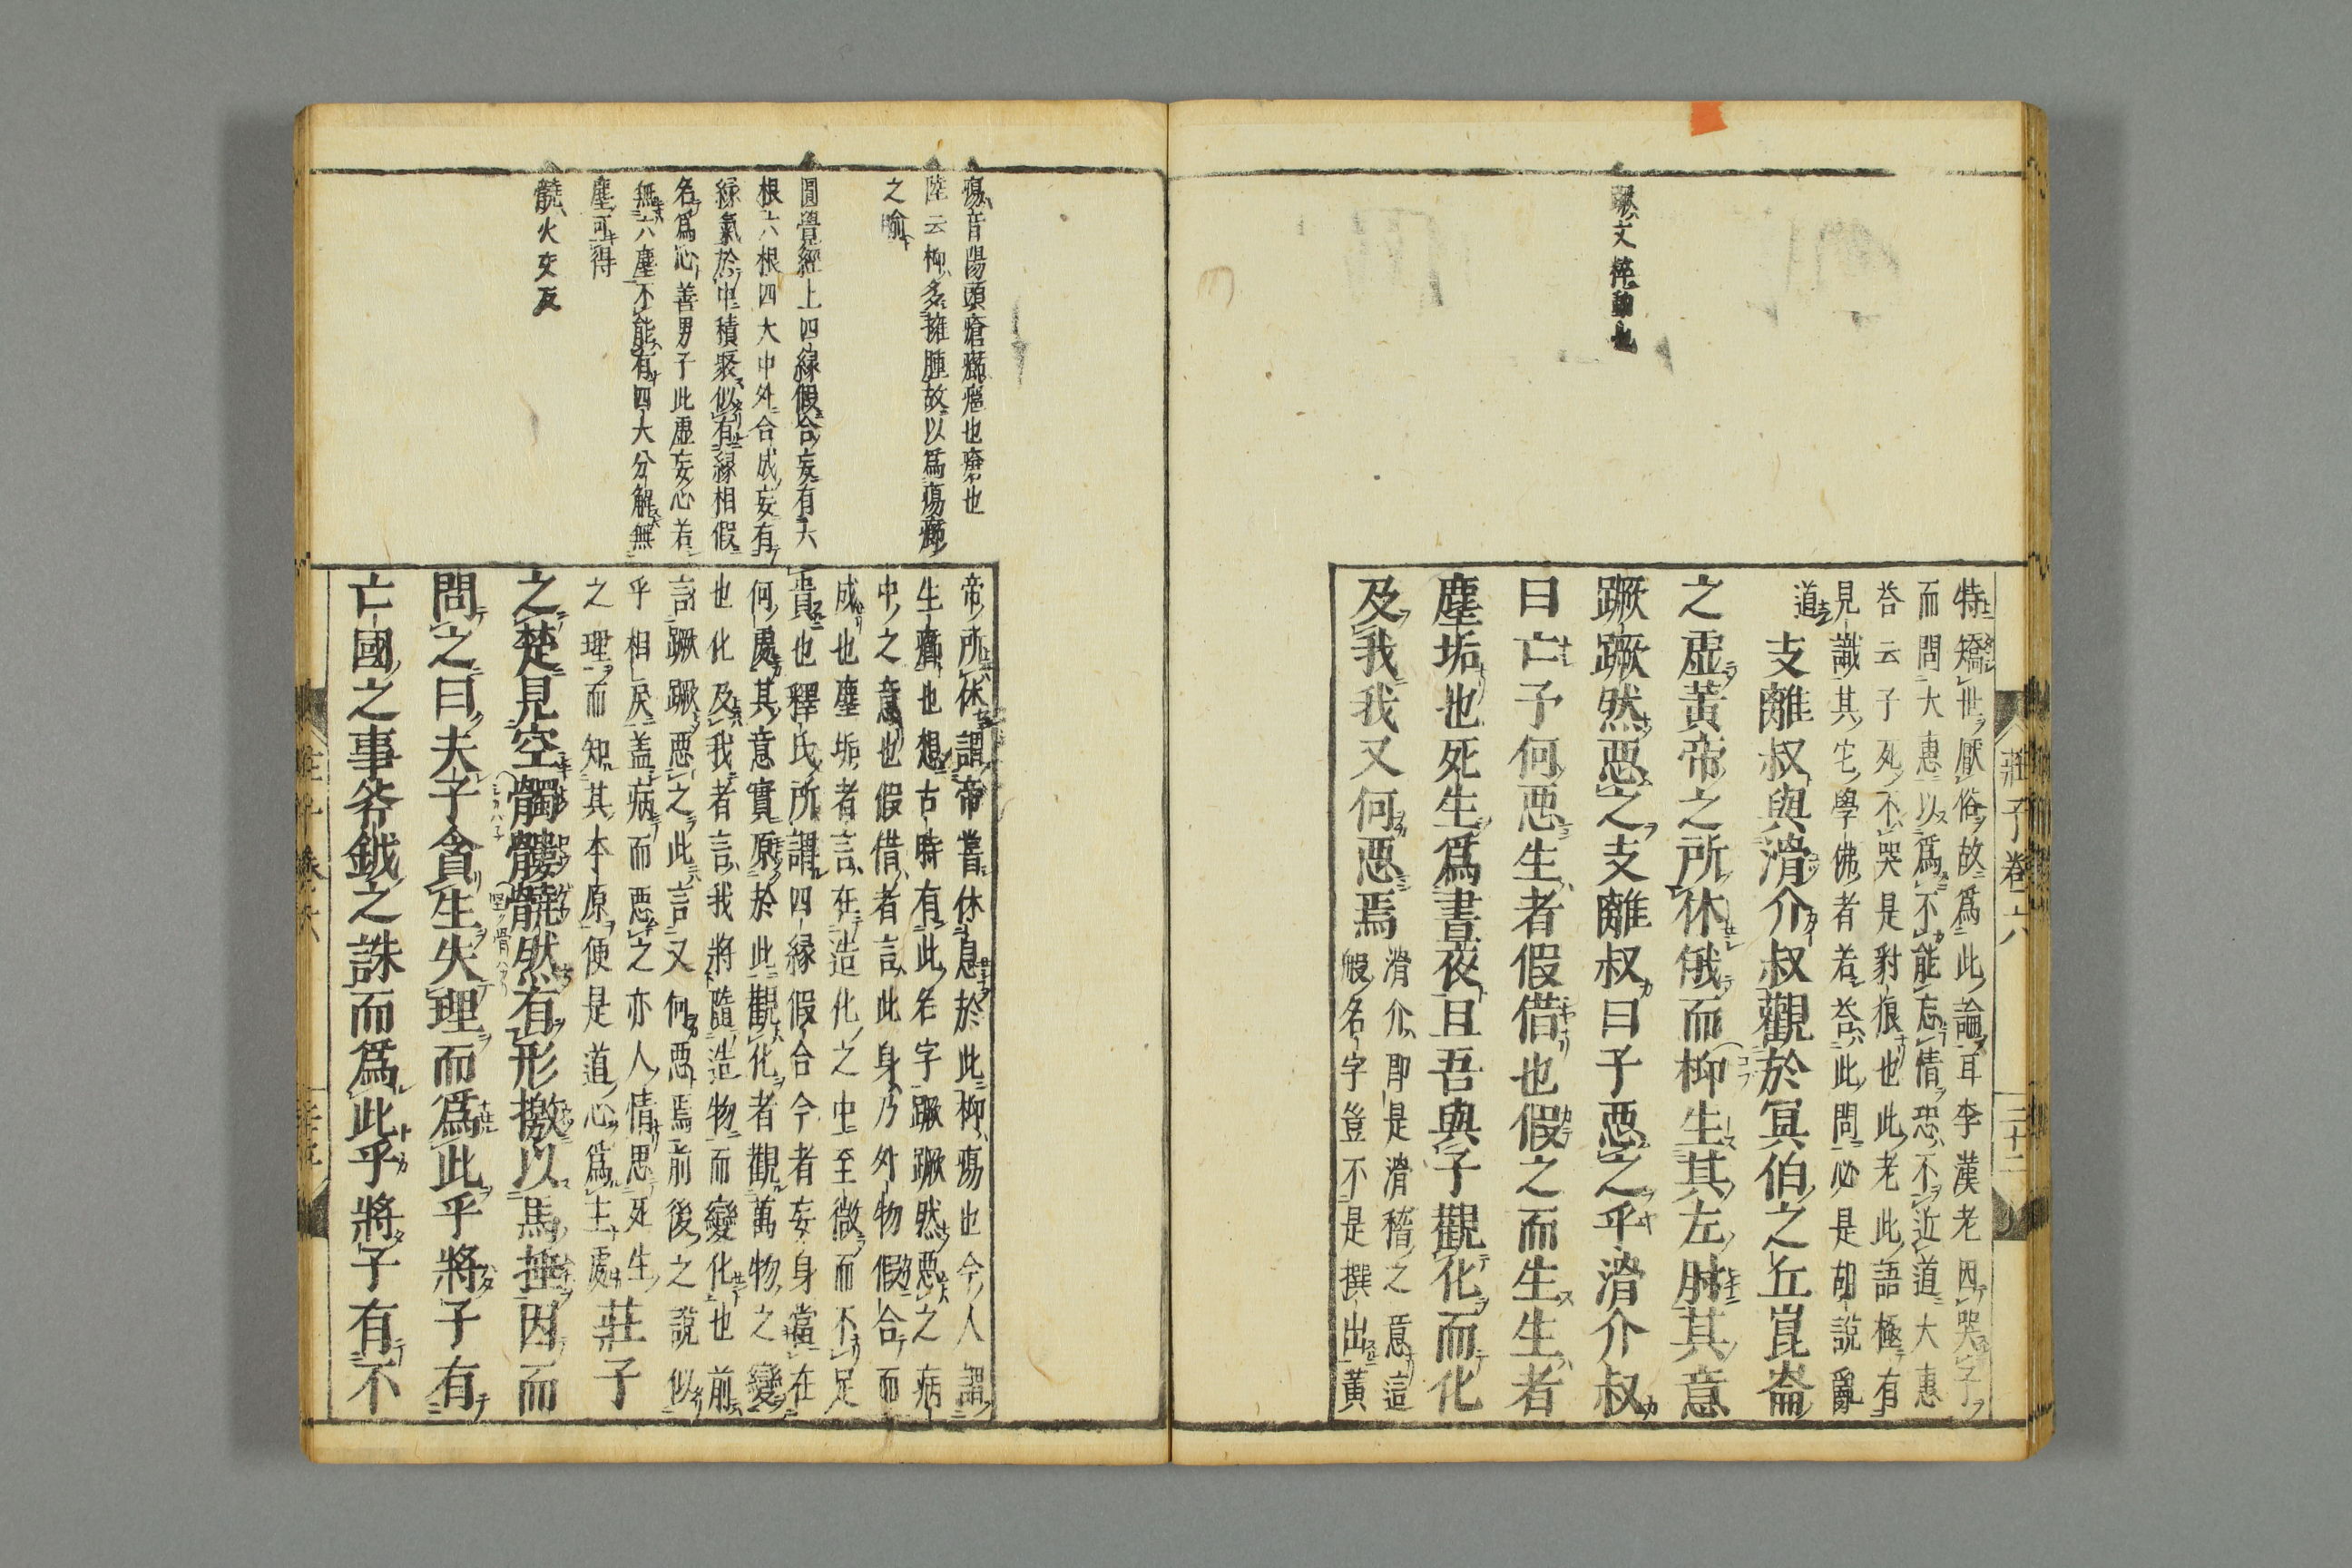 蹶文倅動也
特矯世厭俗故爲此論耳李漢老因哭子
而問大惠以爲不能忘情恐不近道大惠
荅云子死不哭是豺狼也此老此語極有
見識其它學佛者若荅此問必是胡說亂
道
支離叔與滑介叔觀於冥伯之丘崑崙
之虛黃帝之所休俄而柳生其左肘其意
蹶蹶然惡之支離叔曰子惡之乎滑介叔
曰亡予何惡生者假借也假之而生生者
塵垢也死生爲晝夜且吾與子觀化而化
及我我又何惡焉
滑介即是滑稽之意這
般名字豈不是撰出黃
莊子卷六
三十二
瘍音陽頭瘡癰瘡也瘡也
陸云柳多擁腫故以爲瘍癤
之喻
圓覺經上四緣假合妄有六
根六根四大中外合成妄有
緣氣於中積聚似有緣相假
名爲心善男子此虛妄心若
無六塵不能有四大分解無
塵可得
髐火交反
帝所休謂帝嘗休息於此柳瘍也今人謂
生癤也想古時有此名字蹶蹶然惡之病
中之意也假借者言此身乃外物假合而
成也塵垢者言在造化之中至微而不足
貴也釋氏所謂四緣假合今者妄身當在
何處其意實原於此觀化者觀萬物之變
也化及我者言我將隨造物而變化也前
言蹶蹶惡之此言又何惡焉前後之說似
乎相戾蓋病而惡之亦人情思死生
之理而知其本原便是道心爲主處
莊子
之楚見空髑髏髐然有形撽以馬捶因而
問之曰夫子貪生失理而爲此乎將子有
亡國之事斧鉞之誅而爲此乎將子有不
莊子卷六